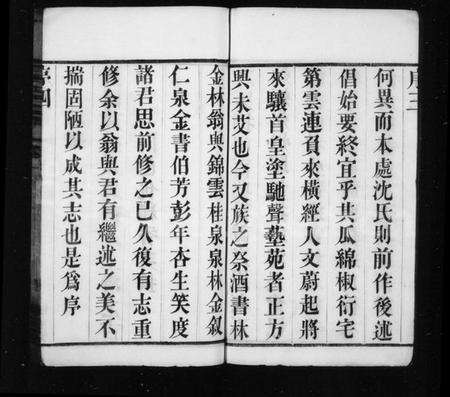 序三
何異而本處沈氏則前作後述
倡始要終宜乎其瓜綿椒衍宅
第雲連負來橫經人文蔚起將
來驤首皇塗馳聲藝苑者正方
興未艾也今又族之祭酒書林
金林翁與錦雲桂泉泉林金敘
仁泉金書伯芳彭年杏生笑度
諸君思前修之已久復有志重
修余以翁與君有繼述之美不
揣固陋以成其志也是爲序
序四